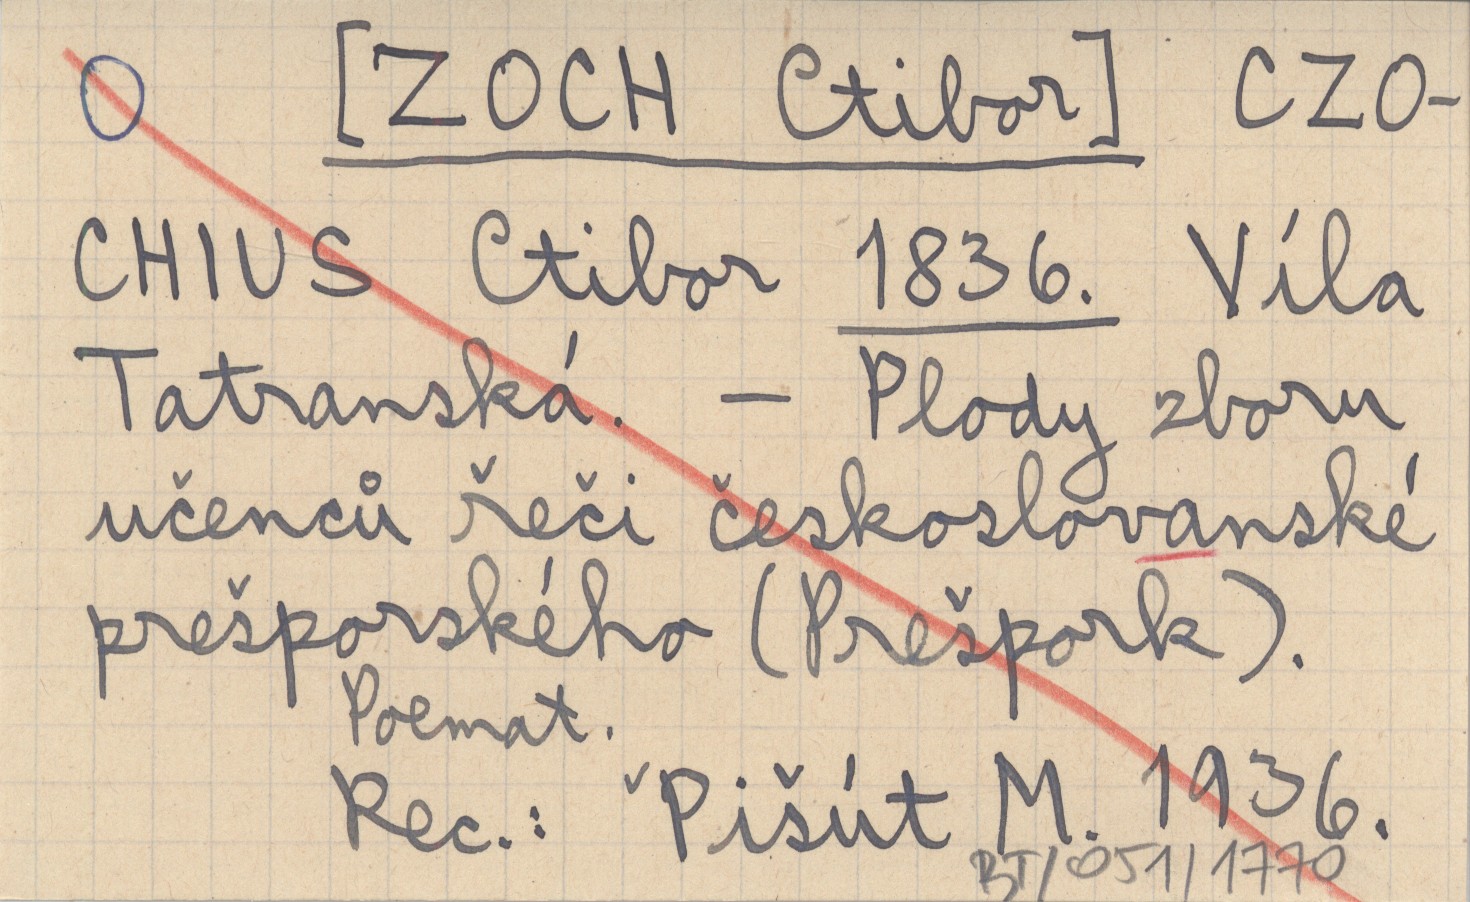 O [ZOCH Ctibor] CZO-
CHIUS Ctibor 1836. Víla
Tatranská. — Plody zboru
učenců řeči českoslovanské
prešporského (Prešpork).
Poemat.
Rec.: ˇPišút M. 1936.
BT/051/1770